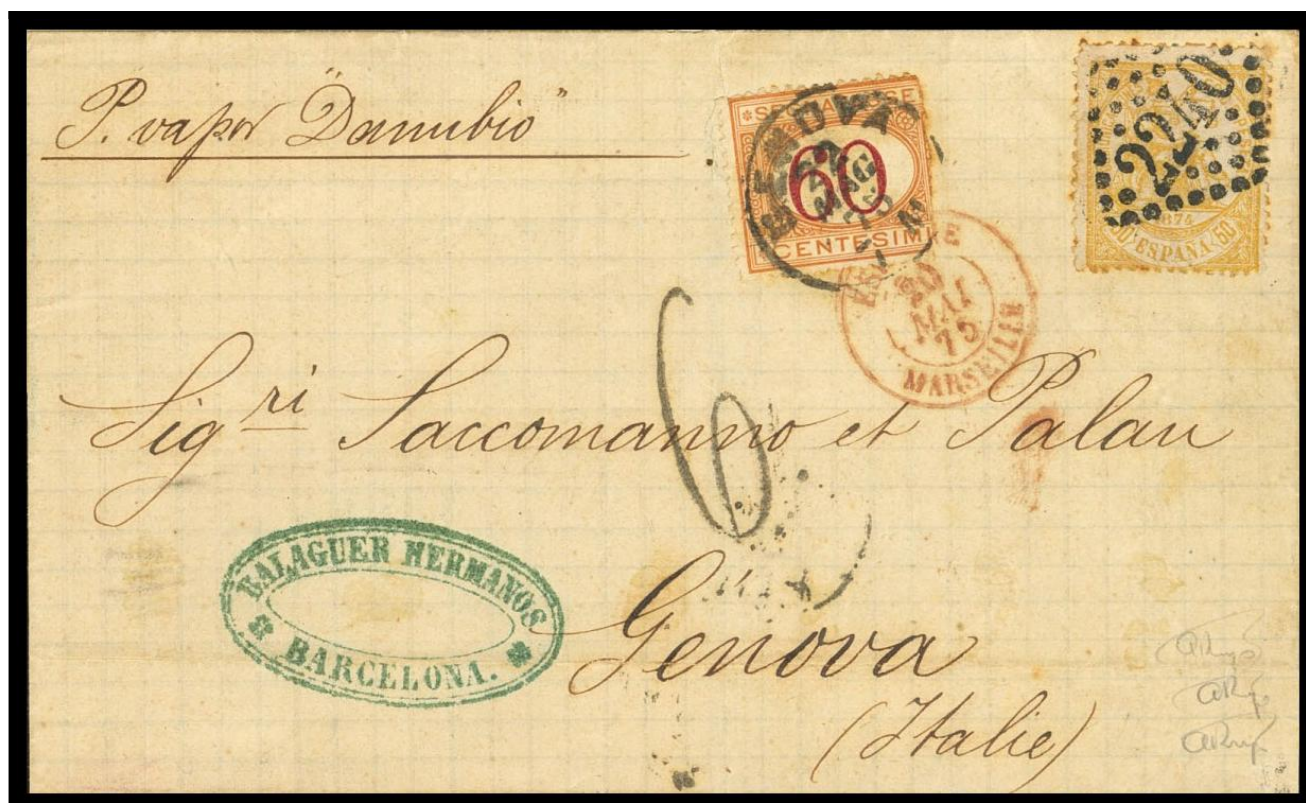 P. vapor "Danubio"
SEGNATASSE
60
CENTESIMI
GENOVA
22
MAG
75
2240
1874
ESPAÑA 50
20
MAI
75
MARSEILLE
6
Sig.ri Saccomanno et Palau
BALAGUER HERMANOS
BARCELONA.
Genova
(Italie)